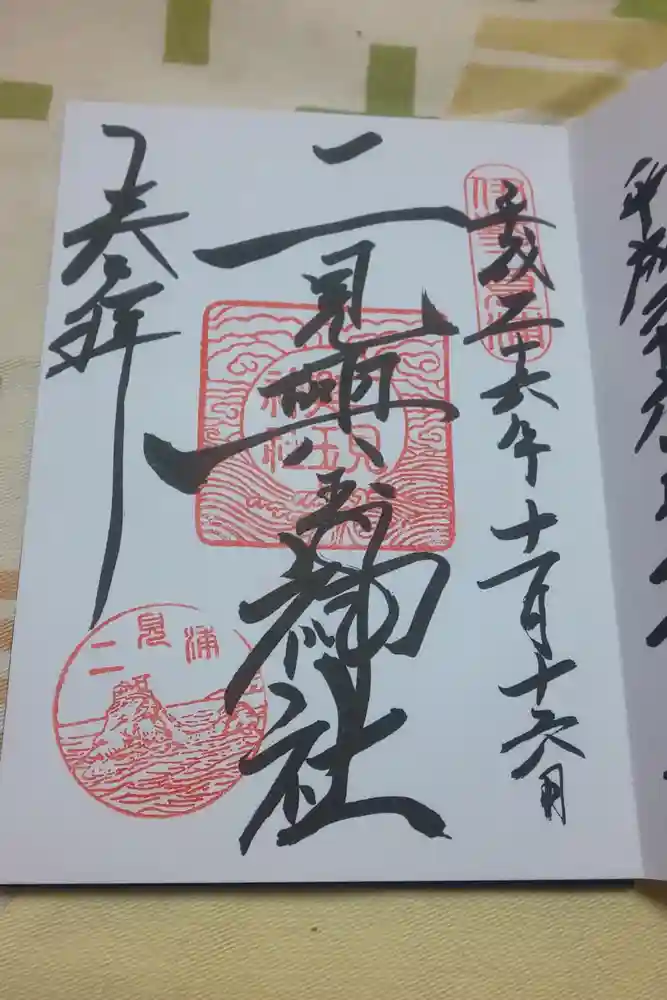 平成二十六年十一月十六日
伊勢二見浦
二見興玉神社
二見興玉神社
奉拝
二見浦